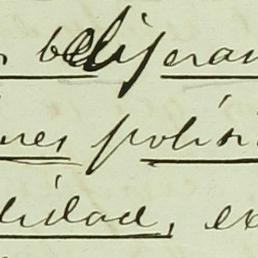 beligeran
nes polisi
lidad, ex